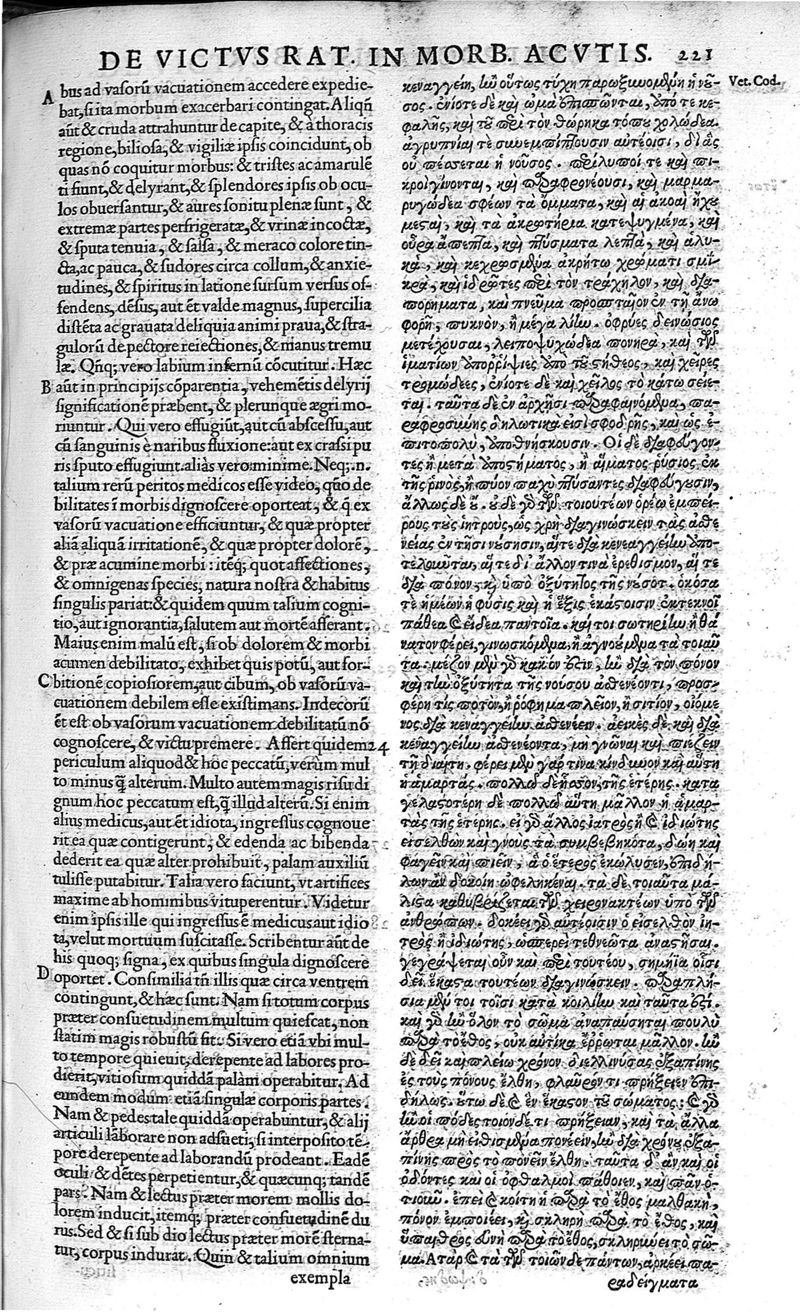 DE VICTVS RAT. IN MORB. ACVTIS. 221
Vet. Cod.
A
bus ad vasorū vacuationem accedere expedie-
bat, si ita morbum exacerbari contingat. Aliqñ
aūt & cruda attrahuntur de capite, & à thoracis
regione, biliosa, & vigiliæ ipsis coincidunt, ob
quas nō coquitur morbus: & tristes ac amarulē
ti fiunt, & delyrant, & splendores ipsis ob ocu-
los obuersantur, & aures sonitu plenæ sunt, &
extremæ partes perfrigeratæ, & vrinæ incoctæ,
& sputa tenuia, & salsa, & meraco colore tin-
cta, ac pauca, & sudores circa collum, & anxie-
tudines, & spiritus in latione sursum versus of-
fendens, dēsus, aut ēt valde magnus, supercilia
distēta ac grauata deliquia animi praua, & stra-
gulorū de pectore reiectiones, & manus tremu
læ. Qñq; vero labium infernū cōcutitur. Hæc
B
aūt in principijs cōparentia, vehemētis delyrij
significationē præbent, & plerunque ægri mo-
riuntur. Qui vero effugiūt, aut cū abscessu, aut
cū sanguinis è naribus fluxione: aut ex crassi pu
ris sputo effugiunt. aliàs vero minime. Neq; .n.
talium rerū peritos medicos esse video, quō de
bilitates ī morbis dignoscere oporteat, & q̄ ex
vasorū vacuatione efficiuntur, & quæ propter
aliā aliquā irritationē, & quæ propter dolorē,
& præ acumine morbi: itēq; quot affectiones,
& omnigenas species, natura nostra & habitus
singulis pariat: & quidem quum talium cogni-
tio, aut ignorantia, salutem aut mortē afferant.
Maius enim malū est, si ob dolorem & morbi
acumen debilitato, exhibet quis potū, aut sor-
C
bitionē copiosiorem, aut cibum, ob vasorū va-
cuationem debilem esse existimans. Indecorū
ēt est ob vasorum vacuationem debilitatū nō
cognoscere, & victu premere. Affert quidem 24
periculum aliquod & hoc peccatū, verùm mul
to minus q̃ alterum. Multo autem magis risu di
gnum hoc peccatum est, q̃ illud alterū. Si enim
alius medicus, aut ēt idiota, ingressus cognoue
rit ea quæ contigerunt, & edenda ac bibenda
dederit ea quæ alter prohibuit, palam auxiliū
tulisse putabitur. Talia vero faciunt, vt artifices
maxime ab hominibus vituperentur. Videtur
enim ipsis ille qui ingressus ē medicus aut idio
ta, velut mortuum suscitasse. Scribentur aūt de
his quoq; signa, ex quibus singula dignoscere
D
oportet. Consimilia tñ illis quæ circa ventrem
contingunt, & hæc sunt. Nam si totum corpus
præter consuetudinem multum quiescat, non
statim magis robustū fit. Si vero etiā vbi mul-
to tempore quieuit, derepente ad labores pro-
dierit, vitiosum quiddā palàm operabitur. Ad
eundem modum etiā singulæ corporis partes.
Nam & pedes tale quiddā operabuntur, & alij
articuli laborare non adsueti, si interposito tē-
pore derepente ad laborandū prodeant. Eadē
oculi & dētes perpetientur, & quæcunq; tandē
pars. Nam & lectus præter morem mollis do-
lorem inducit, itemq; præter consuetudinē du
rus. Sed & si sub dio lectus præter morē sterna-
tur, corpus indurat. Quin & talium omnium
exempla
κεναγγεῖν, ἢν οὕτως τύχῃ παροξυνομένη ἡ νοῦ-
σος. ἐνίοτε δὲ καὶ ὠμὰ ἐπισπῶνται, ἀπό τε κε-
φαλῆς, καὶ τοῦ περὶ τὸν θώρηκα τόπου χολώδεα.
ἀγρυπνίαι τε συνεμπίπτουσιν αὐτέοισι, δι' ἃς
οὐ πέσσεται ἡ νοῦσος. περίλυποί τε καὶ πι-
κροὶ γίνονται, καὶ παραφρονέουσι, καὶ μαρμα-
ρυγώδεα σφέων τὰ ὄμματα, καὶ αἱ ἀκοαὶ ἤχου
μεσταὶ, καὶ τὰ ἀκρωτήρια κατεψυγμένα, καὶ
οὖρα ἄπεπτα, καὶ πτύσματα λεπτὰ, καὶ ἁλυ-
κὰ, καὶ κεχρωσμένα ἀκρήτῳ χρώματι σμι-
κρὰ, καὶ ἱδρῶτες περὶ τὸν τράχηλον, καὶ δια-
πορήματα, καὶ πνεῦμα προσπταῖον ἐν τῇ ἄνω
φορῇ, πυκνὸν, ἢ μέγα λίην. ὀφρύες δεινώσιος
μετέχουσαι, λειποψυχώδεα πονηρὰ, καὶ τῶν
ἱματίων ἀπορρίψιες ἀπὸ τοῦ στήθεος, καὶ χεῖρες
τρομώδεες, ἐνίοτε δὲ καὶ χεῖλος τὸ κάτω σείε-
ται. ταῦτα δὲ ἐν ἀρχῇσι παραφαινόμενα, πα-
ραφροσύνης δηλωτικά εἰσι σφοδρῆς, καὶ ὡς ἐ-
πιτοπολὺ, ἀποθνήσκουσιν. Οἱ δὲ διαφυγόν-
τες ἢ μετὰ ἀποστήματος, ἢ αἵματος ῥύσιος ἐκ
τῆς ῥινὸς, ἢ πύον παχὺ πτύσαντες διαφεύγουσιν,
ἄλλως δὲ οὔ. οὐδὲ γὰρ τῶν τοιουτέων ὁρέω ἐμπεί-
ρους τοὺς ἰητροὺς, ὡς χρὴ διαγινώσκειν τὰς ἀσθε
νείας ἐν τῇσι νούσῃσιν, αἵ τε διὰ κενεαγγείην ἀπο-
τελοῦνται, αἵ τε δι' ἄλλον τινὰ ἐρεθισμὸν, αἵ τε
διὰ πόνον, καὶ ὑπὸ ὀξύτητος τῆς νούσου. ὁκόσα
τε ἡμέων ἡ φύσις καὶ ἡ ἕξις ἑκάστοισιν ἐκτεκνοῖ
πάθεα καὶ εἴδεα παντοῖα. καί τοι σωτηρίην ἢ θά
νατον φέρει, γινωσκόμενα, ἢ ἀγνοούμενα τὰ τοιαῦ
τα. μεῖζον μὲν γὰρ κακόν ἐστιν, ἢν διὰ τὸν πόνον
καὶ τὴν ὀξύτητα τῆς νούσου ἀσθενέοντι, προσ-
φέρῃ τις ποτὸν, ἢ ῥόφημα πλεῖον, ἢ σιτίον, οἰόμε
νος διὰ κεναγγείην ἀσθενέειν. ἀεικὲς δὲ καὶ διὰ
κεναγγείην ἀσθενέοντα, μὴ γνῶναι καὶ πιέζειν
τῇ διαίτῃ, φέρει μὲν γάρ τινα κίνδυνον καὶ αὕτη
ἡ ἁμαρτὰς, πολλῷ δὲ ἧσσον, τῆς ἑτέρης. κατα
γελαστοτέρη δὲ πολλῷ αὕτη μᾶλλον ἡ ἁμαρ-
τὰς τῆς ἑτέρης. εἰ γὰρ ἄλλος ἰατρὸς ἢ καὶ ἰδιώτης
εἰσελθὼν καὶ γνοὺς τὰ συμβεβηκότα, δώῃ καὶ
φαγεῖν καὶ πιεῖν, ἃ ὁ ἕτερος ἐκώλυσεν, ἐπιδή-
λως ἂν δοκοίη ὠφεληκέναι. τὰ δὲ τοιαῦτα μά-
λιστα καθυβρίζεται τῶν χειρονακτέων ὑπὸ τῶν
ἀνθρώπων. δοκέει γὰρ αὐτέοισιν ὁ εἰσελθὼν ἰη-
τρὸς ἢ ἰδιώτης, ὡσπερεὶ τεθνεῶτα ἀναστῆσαι.
γεγράψεται οὖν καὶ περὶ τουτέου, σημήϊα οἷσι
δεῖ ἕκαστα τουτέων διαγινώσκειν. παραπλή-
σια μέν τοι τοῖσι κατὰ κοιλίην καὶ ταῦτά ἐστι.
καὶ γὰρ ἢν ὅλον τὸ σῶμα ἀναπαύσηται πουλὺ
παρὰ τὸ ἔθος, οὐκ αὐτίκα ἔρρωται μᾶλλον. ἢν
δὲ δεῖ καὶ πλείω χρόνον διελινύσας ἐξαπίνης
ἐς τοὺς πόνους ἔλθῃ, φλαῦρόν τι πρήξειεν ἐπι-
δήλως. οὕτω δὲ καὶ ἓν ἕκαστον τοῦ σώματος. καὶ γὰρ
ἢν οἱ πόδες τοιόνδε τι πρήξειαν, καὶ τὰ ἄλλα
ἄρθρα μὴ εἰθισμένα πονέειν, ἢν διὰ χρόνου ἐξα-
πίνης πρὸς τὸ πονέειν ἔλθῃ. ταῦτα δ' ἂν καὶ οἱ
ὀδόντες καὶ οἱ ὀφθαλμοὶ πάθοιεν, καὶ πᾶν ὅ-
τιοῦν. ἐπεὶ καὶ κοίτη ἡ παρὰ τὸ ἔθος μαλθακὴ,
πόνον ἐμποιέει, καὶ σκληρὴ παρὰ τὸ ἔθος, καὶ
ὕπαιθρος εὐνὴ παρὰ τὸ ἔθος, σκληρύνει τὸ σῶ-
μα. Ἀτὰρ καὶ τὰ τῶν τοιῶνδε πάντων, ἀρκέει πα-
ραδείγματα